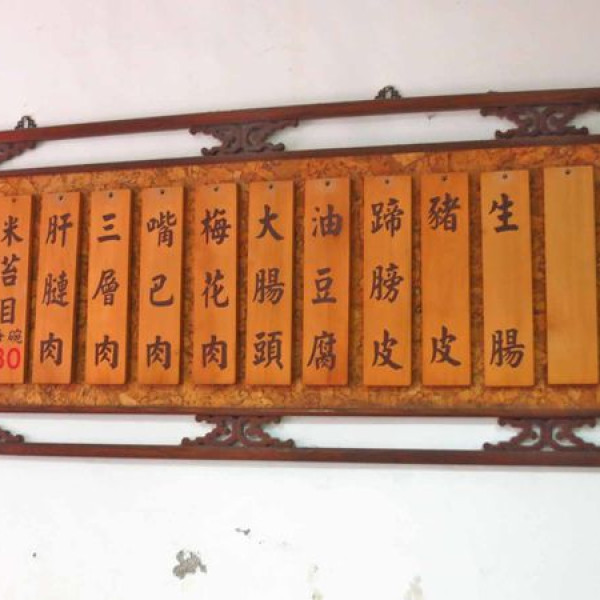 生腸
豬皮
蹄膀皮
油豆腐
大腸頭
梅花肉
嘴巴肉
三層肉
肝腱肉
米苔目
碗
30